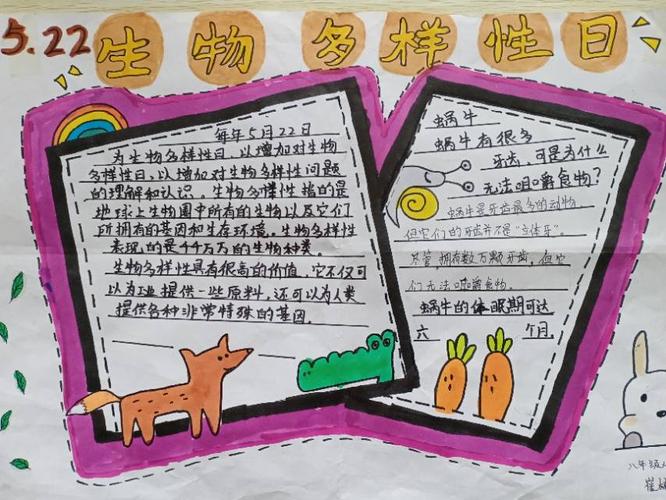 5.22生物多样性日
每年5月22日
为生物多样性日,以增加对生物
多样性日,以增加对生物多样性问题
的理解和认识。生物多样性指的是
地球上生物圈中所有的生物以及它们
所拥有的基因和生存环境。生物多样性
表现的是千千万万的生物种类。
生物多样性具有很高的价值,它不仅可
以为工业提供一些原料,还可以为人类
提供各种非常特殊的基因.
蜗牛
蜗牛有很多
牙齿,可是为什么
无法咀嚼食物?
蜗牛是牙齿最多的动物,
但它们的牙齿并不是“立体牙”
尽管拥有数万颗牙齿,但它
们无法咀嚼食物。
蜗牛的休眠期可达
六 个月.
八年级
崔